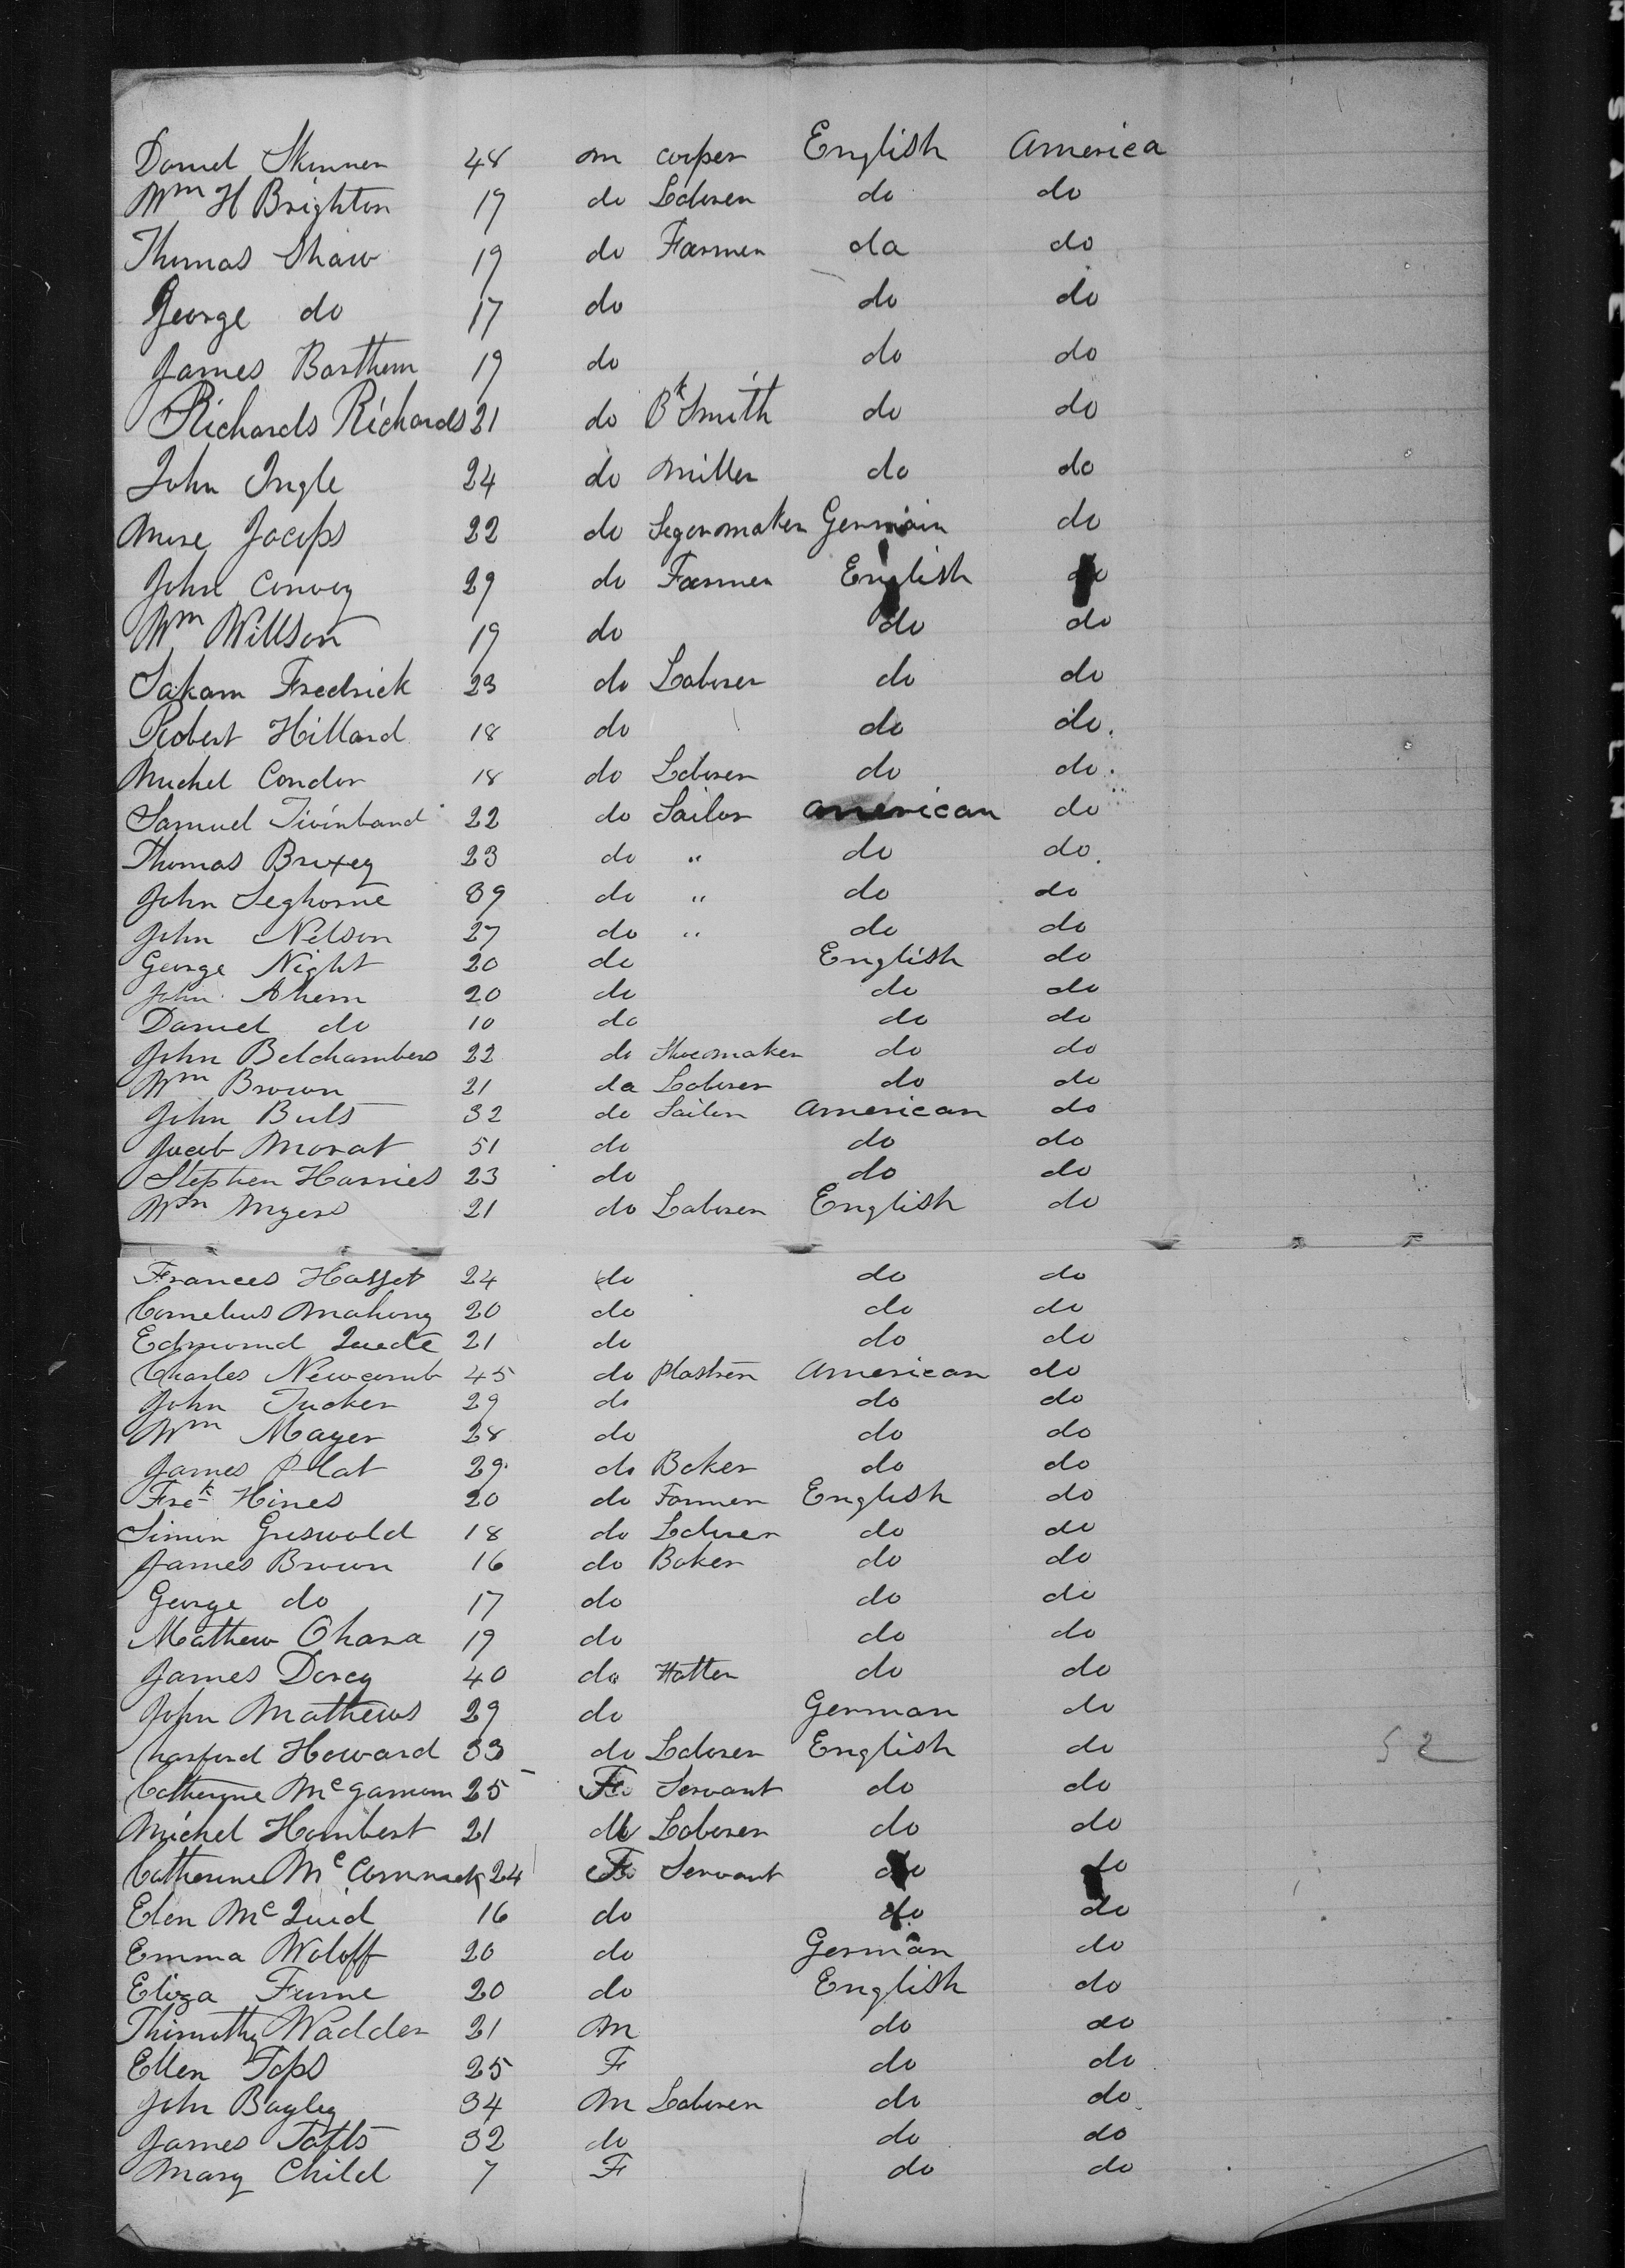 Daniel Skinner 48 m corper English America
Wm H Brighton 19 do Laborer do do
Thomas Shaw 19 do Farmer da do
George do 17 do do do
James Barthum 19 do do do
Richards Richards 21 do Bk Smith do do
John Ingle 24 do Miller do do
Jacops 22 do Segarmaker German do
John Convey 29 do Farmer English do
Wm Willson 19 do do do
Sakam Fredrick 23 do Laborer do do
Robert Hillard 18 do do do.
Michel Condon 18 do Laborer do do.
Samuel 22 do Sailor American do
Thomas Bruxey 23 do " do do.
John Seghorne 39 do " do do
John Nelson 27 do " do do
George Night 20 do English do
John Ahern 20 do do do
Daniel do 10 do do do
John Belchambers 22 do Shoemaker do do
Wm Brown 21 da Laborer do do
John Buts 32 do Sailor American do
Jacob Morat 51 do do do
Stephen Harries 23 do do do
Wm Myers 21 do Laborer English do
Frances Hasset 24 do do do
Cornelius Mahony 20 do do do
Edmund 21 do do do
Charles Newcomb 45 do Plastren American do
John Tucker 29 do do do
Wm Mayer 28 do do do
James Plat 29 do Baker do do
Frek Hines 20 do Farmer English do
Simon Griswold 18 do Laborer do do
James Brown 16 do Baker do do
George do 17 do do do
Mathew Ohara 19 do do do
James Darcy 40 do Hatter do do
John Mathews 29 do German do
Howard 33 do Laborer English do
52
Catherine McGarnum 25 F Servant do do
Michel Hambert 21 M Laborer do do
Catherine McCormack 24 F Servant do do
Elen McQuid 16 do do do
Emma Woloff 20 do German do
Eliza Fume 20 do English do
Thimothy Wadden 21 M do do
Ellen Tops 25 F do do
John Bayley 34 M Laborer do do
James Tafts 32 do do do
Mary Child 7 F do do